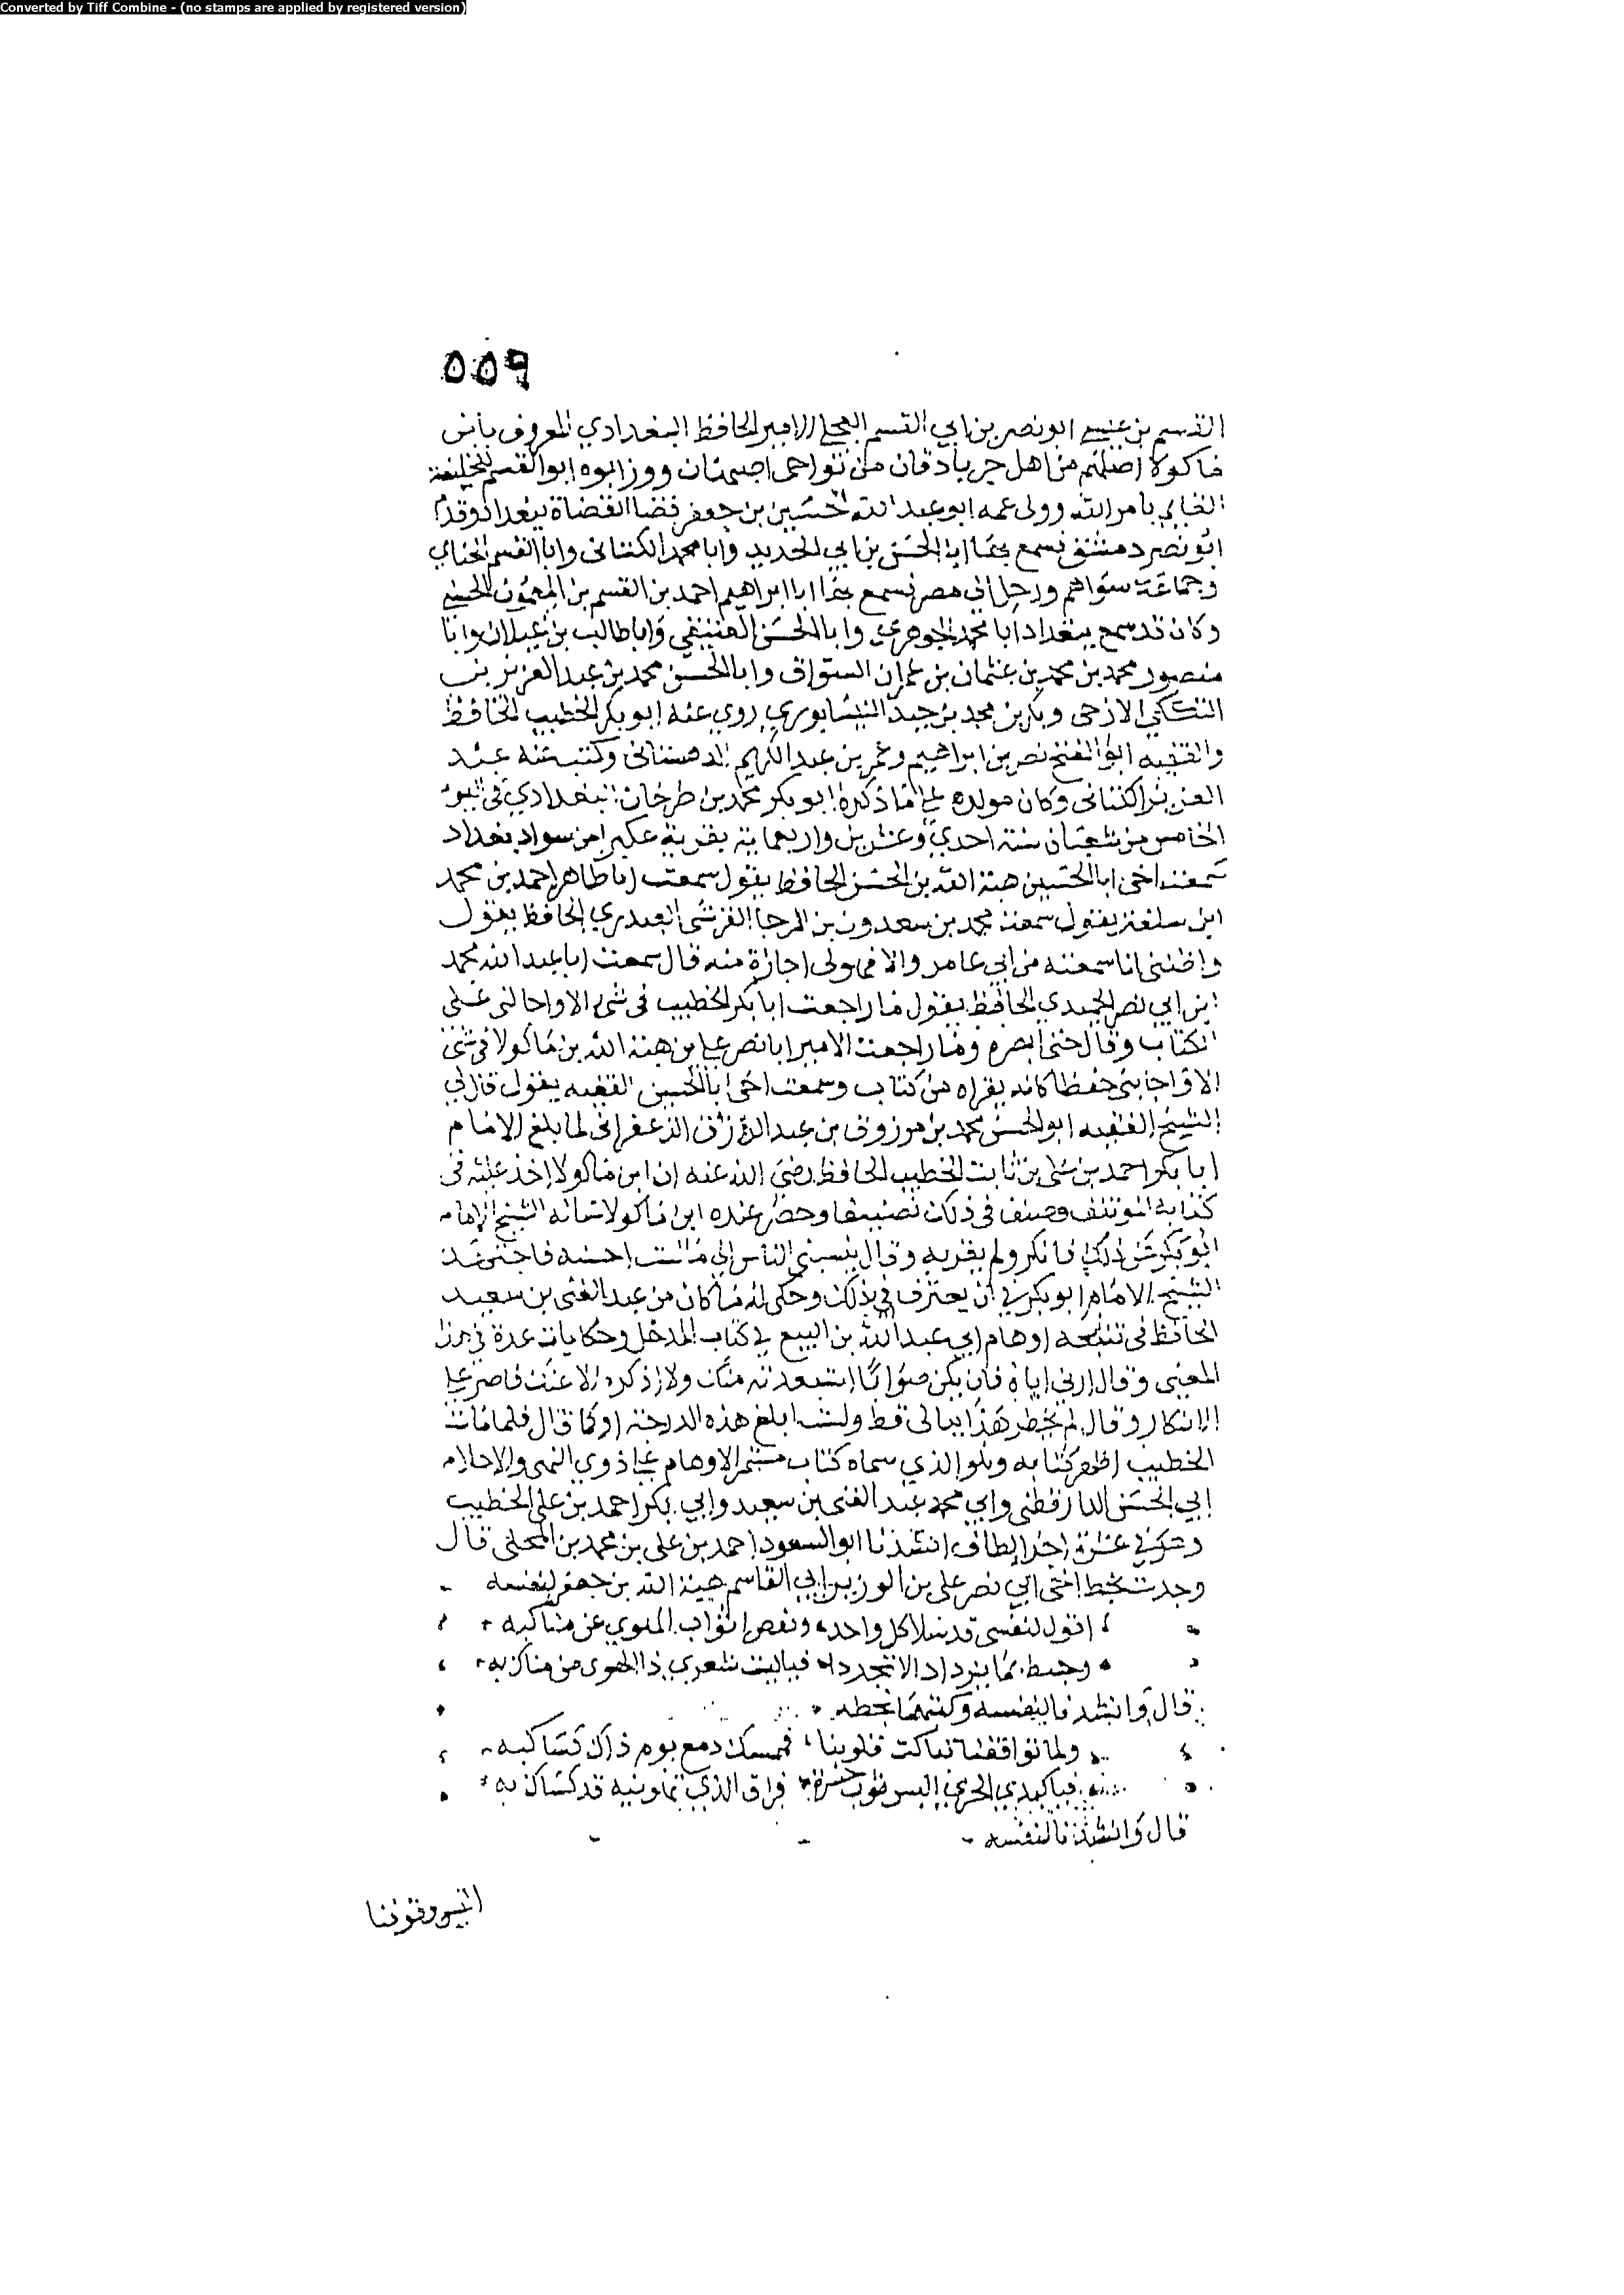 Converted by Tiff Combine - (no stamps are applied by registered version)
٥٥٩
القسم بن عيسى ابو نصر بن ابي القسم العجلي الامير الحافظ البغدادي المعروف بابن
ماكولا اصلهم من اهل جرباذقان من نواحي اصبهان ووزر ابوه ابو القسم للخليفة
القايم بامر الله وولى عمه ابو عبد الله الحسين بن جعفر قضا القضاة ببغداد وقدم
ابو نصر دمشق فسمع بها ابا الحسن بن ابي الحديد وابا محمد الكتاني وابا القسم الحنائي
وجماعة سواهم ورحل الى مصر فسمع بها ابا ابراهيم احمد بن القسم بن الميمون الحسيني
وكان قد سمع ببغداد ابا محمد الجوهري وابا الحسن العتيقي وابا طالب بن غيلان وابا
منصور محمد بن محمد بن عثمان بن عمران السواق وابا الحسن محمد بن عبد العزيز بن
التككي الازجي وبكر بن محمد بن حيد النيسابوري روي عنه ابو بكر الخطيب الحافظ
والفقيه ابو الفتح نصر بن ابراهيم وعمر بن عبد الكريم الدهستاني وكتب عنه عبد
العزيز الكتاني وكان مولده على ما ذكره ابو بكر محمد بن طرخان البغدادي في اليوم
الخامس من شعبان سنة احدي وعشرين واربعماية بقرية عكبرا من سواد بغداد
سمعت اخي ابا الحسين هبة الله بن الحسن الحافظ يقول سمعت ابا طاهر احمد بن محمد
ابن سلفة يقول سمعت محمد بن سعدون بن المرجا القرشي العبدري الحافظ يقول
واظنني انا سمعته من ابي عامر والا فهو لي اجازة منه قال سمعت ابا عبد الله محمد
ابن ابي نصر الحميدي الحافظ يقول ما راجعت ابا بكر الخطيب في شي الا واحالني على
الكتاب وقال حتى ابصره وما راجعت الامير ابا نصر علي بن هبة الله بن ماكولا في شي
الا واجابني حفظا كانه يقراه من كتاب وسمعت اخي ابا الحسين الفقيه يقول قال لي
الشيخ الفقيه ابو الحسن محمد بن مرزوق بن عبد الرزاق الزعفراني لما بلغ الامام
ابا بكر احمد بن علي بن ثابت الخطيب الحافظ رضي الله عنه ان ابن ماكولا اخذ عليه في
كتابه المؤتنف وصنف في ذلك تصنيفا وحضر عنده ابن ماكولا ساله الشيخ الامام
ابو بكر عن ذلك فانكر ولم يقر به وقال ينسبني الناس الى ما لست احسنه فاجتهد
الشيخ الامام ابو بكر في ان يعترف في بذلك وحكى له ما كان من عبد الغني بن سعيد
الحافظ في تتبعه اوهام ابي عبد الله بن البيع في كتاب المدخل وحكايات عدة في هذا
المعنى وقال ارني اياه فان يكن صوابا استفدته منك ولا اذكره الا عنك فاصر على
الانكار وقال لم يخطر هذا ببالي قط ولست ابلغ هذه الدرجة او كما قال فلما مات
الخطيب اظهر كتابه وهو الذي سماه كتاب مستمر الاوهام على ذوي النهى والاحلام
ابي الحسن الدارقطني وابي محمد عبد الغني بن سعيد وابي بكر احمد بن علي الخطيب
وهو في عشرة اجزا لطاف انشدنا ابو السعود احمد بن علي بن محمد بن المجلى قال
وجدت بخط اخي ابي نصر علي بن الوزير ابي القاسم هبة الله بن جعفر لنفسه
اقول لنفسي قد سلا كل واحد ونفض اثواب الهوي عن مناكبه
وحبك ما يزداد الا تجددا فياليت شعري ذا الهوى من مناك به
قال وانشدنا لنفسه وكتبهما بخطه
ولما تواقفنا تباكت قلوبنا فممسك دمع يوم ذاك كساكبه
فيا كبدي الحرى البسي ثوب حسرة فراق الذي تهوينه قد كساك به
قال وانشدنا لنفسه